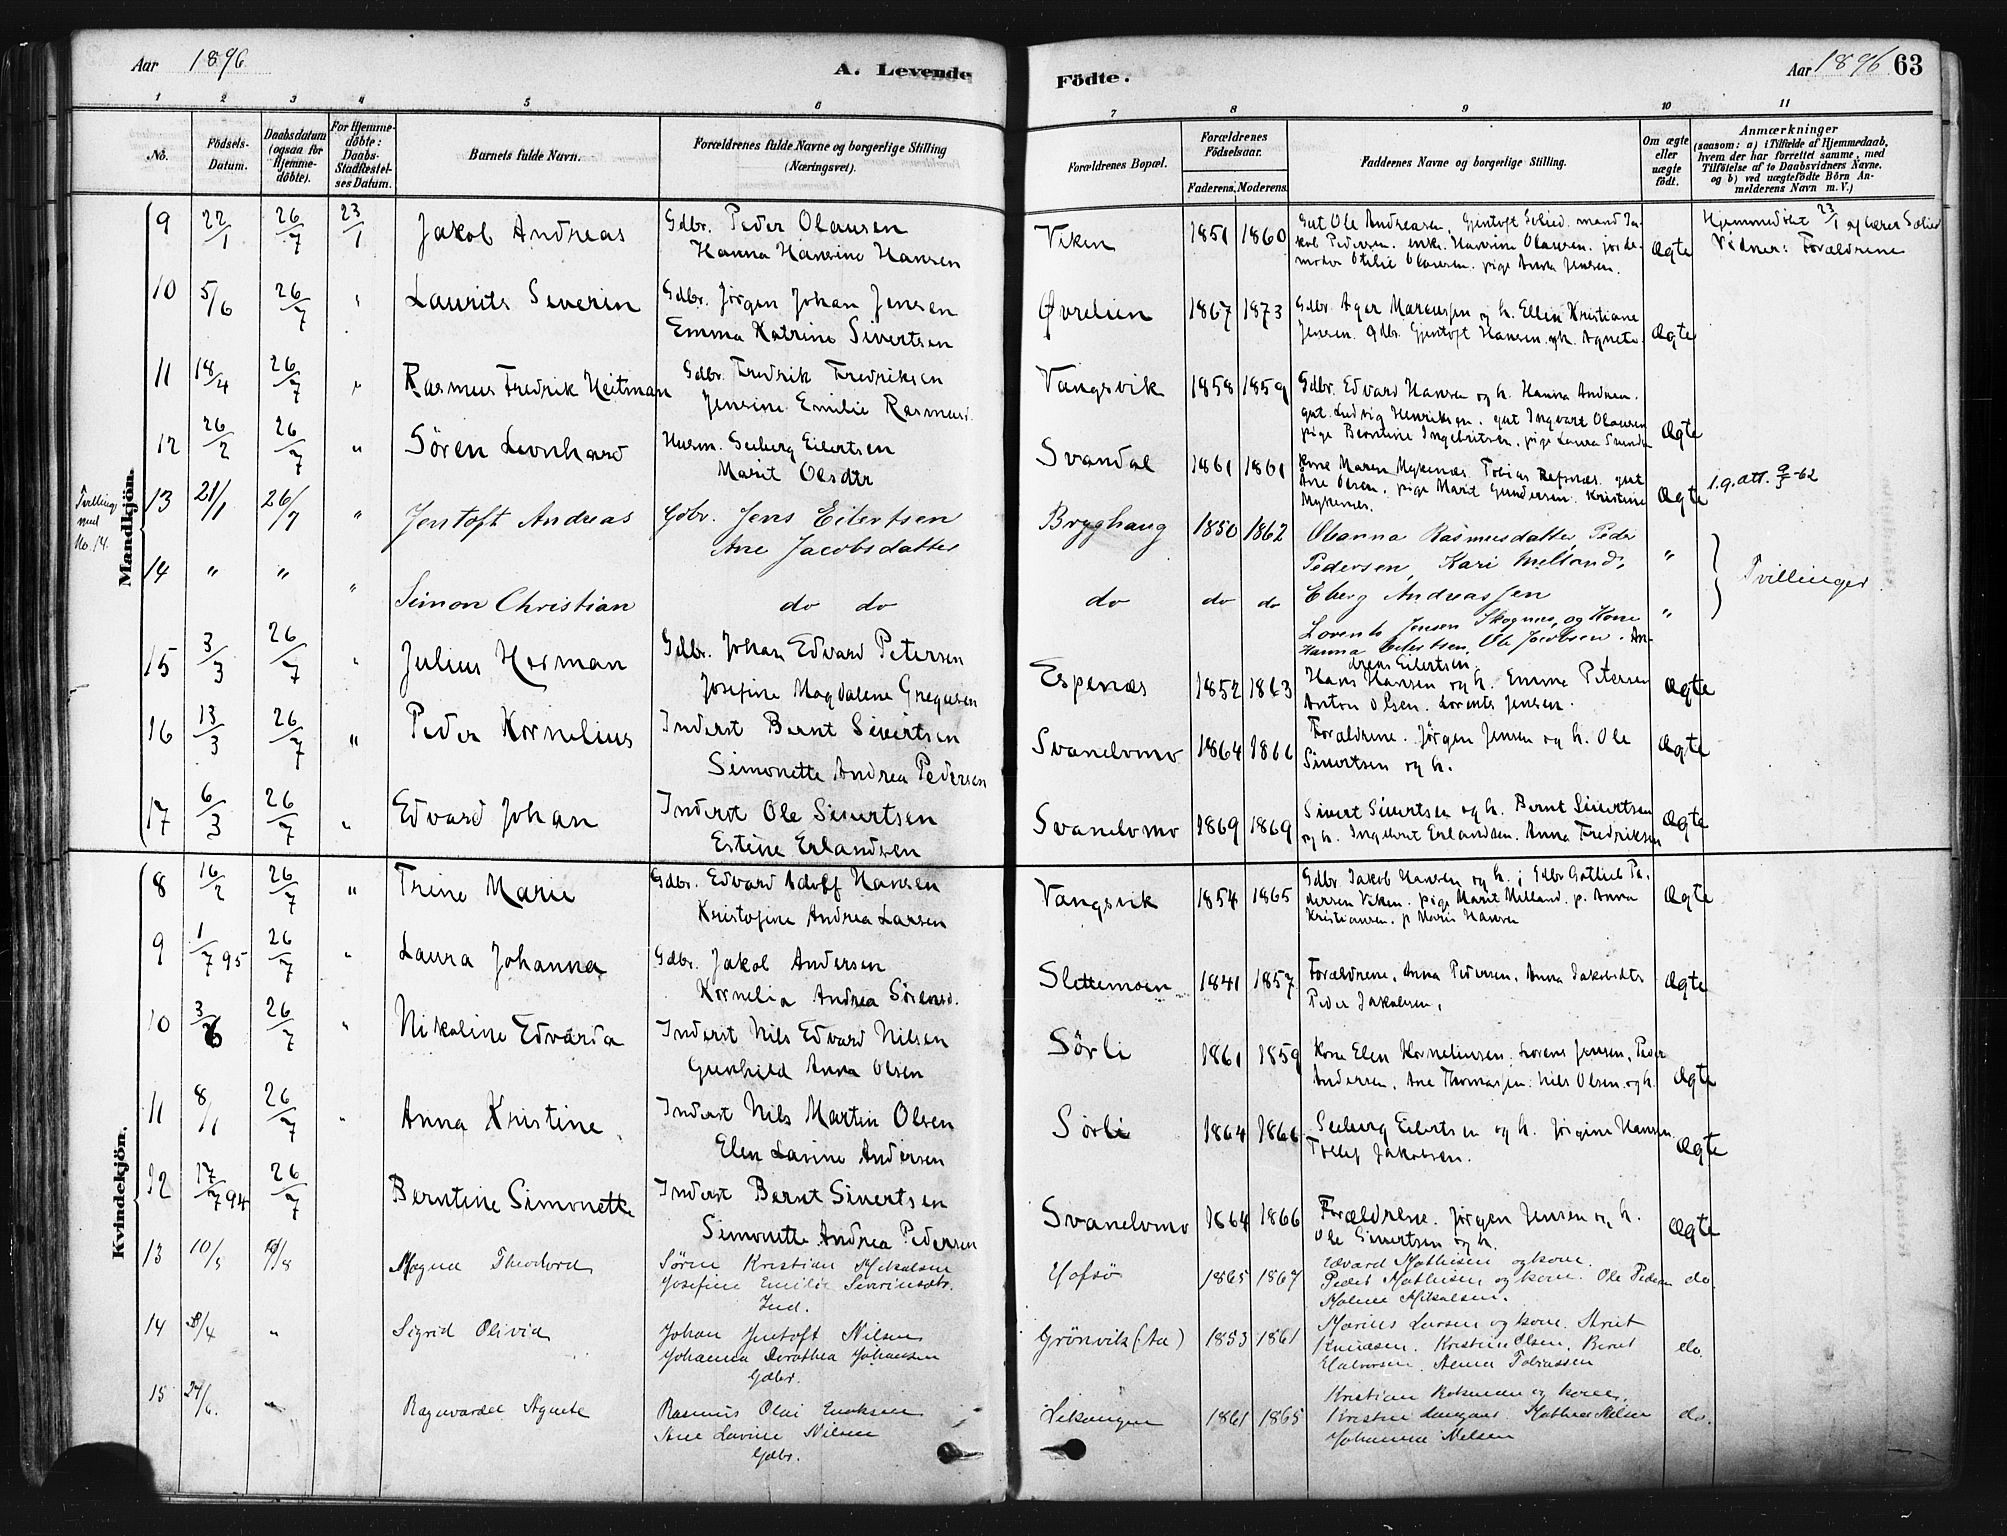 Aar 1896
A. Levende
Födte.
Aar 1896 63
1 2 3 4 5 6 7 8 9 10 11
No.
Födsels-Datum.
Daabsdatum (ogsaa for Hjemmedöbte).
For Hjemmedöbte: Daabs-Stadfæstelses Datum.
Barnets fulde Navn.
Forældrenes fulde Navne og borgerlige Stilling (Næringsvei).
Forældrenes Bopæl.
Forældrenes Födselsaar.
Faderens. Moderens.
Faddernes Navne og borgerlige Stilling.
Om ægte eller uægte födt.
Anmærkninger
(saasom: a) i Tilfælde af Hjemmedaab, hvem der har forrettet samme, med Tilföielse af to Daabsvidners Navne. og b) ved uægtefödte Börn Anmelderens Navn m. V.)
Mandkjön.
9 22/1 26/7 23/1 Jakob Andreas Gdbr. Peder Olausen Viken 1851 1860 Gut Ole Andreasen, Gjentoft Solied. mand Ja- Ægte Hjemmedøbt 23/1 af lærer Solied
Hanna Hansine Hansen kob Pedersen. enke Hansine Olausen. jorde- Vidner: Forældrene
moder Otilie Olausen. pige Anna Jensen.
10 5/6 26/7 " Laurits Severin Gdbr. Jørgen Johan Jensen Øvrelien 1867 1873 Gdbr. Agar Marcussen og h. Ellen Kristiane Ægte
Emma Katrine Sivertsen Jensen. gdbr. Gjentoft Hansen og h. Agnete.
11 18/4 26/7 " Rasmus Fredrik Heitman Gdbr. Fredrik Fredriksen Vangsvik 1858 1859 Gdbr. Edvard Hansen og h. Hanna Andrea.
Jensine Emilie Rasmusd. gut Ludvig Henriksen. gut Ingvart Olausen Ægte
pige Berntine Ingebritsen, pige Laura
12 26/2 26/7 " Sören Leonhard Husm. Seeberg Eilertsen Svandal 1861 1861 Kone Maren Mykenæs. Tobias Refsnæs. gut Ægte 1. g. att. 9/5-62
Marit Olsdtr Ane Olsen. pige Marit Gundersen. Kristine
Mykenæs.
Tvilling med No. 14.
13 21/1 26/7 " Jentoft Andreas Gdbr. Jens Eilertsen Brygghaug 1850 1862 Oleanna Rasmusdatter, Peder "
Ane Jacobsdatter Pedersen, Kari Melland,
14 " " " Simon Christian do do do do do Eberg Andreassen " Tvillinger.
Lorents Jensen Skognes, og Kone
Hanna Eilertsen, Ole Jacobsen. An-
dreas Eilertsen.
15 3/3 26/7 " Julius Herman Gdbr. Johan Edvard Petersen Espenæs 1852 1863 Hans Hansen og h. Emma Petersen Ægte
Josefine Magdalene Gregusen Anton Olsen. Lorents Jensen.
16 13/3 26/7 " Peder Kornelius Inderst Bernt Sivertsen Svanelvmo 1864 1866 Forældrene. Jørgen Jensen og h. Ole Ægte
Simonette Andrea Pedersen Sivertsen og h.
17 6/3 26/7 " Edvard Johan Inderst Ole Sivertsen Svanelvmo 1869 1869 Sivert Sivertsen og h. Bernt Sivertsen Ægte
Estine Erlandsen og h. Ingebret Erlandsen. Anna Fredriksen
Kvindekjön.
8 16/2 26/7 " Trine Marie Gdbr. Edvard Adolf Hansen Vangsvik 1854 1865 Gdbr. Jakob Hansen og h.; Gdbr Gotlieb Pe- Ægte
Kristofine Andrea Larsen dersen Viken. pige Marit Melland. p. Anna
Kristiansen. p Marie Hansen
9 1/7 95 26/7 " Laura Johanna Gdbr. Jakob Andersen Slettemoen 1841 1857 Forældrene, Anna Pedersen. Anna Jakobsdtr Ægte
Kornelia Andrea Sörensd. Peder Jakobsen,
10 3/6 26/7 " Nikoline Edvarda Inderst Nils Edvard Nilsen Sørli 1861 1859 Kone Elen Kornelinsen. Lorens Jensen, Peder Ægte
Gunhild Anna Olsen Andersen, Ane Thomassen. Nils Olsen og h.
11 8/1 26/7 " Anna Kristine Inderst Nils Martin Olsen Sørli 1864 1866 Seeberg Eilertsen og h. Jørgine Hansen Ægte
Elen Lavine Andersen Tollef Jakobsen.
12 17/7 94 26/7 Berntine Simonette Inderst Bernt Sivertsen Svanelvmo 1864 1866 Forældrene. Jørgen Jensen og h. Ægte
Simonette Andrea Pedersen Ole Sivertsen og h.
13 10/5 Magna Theodora Sören Kristian Mikalsen Hofsö 1865 1867 Edvard Mathisen og kone. do
Josefine Emilie Sivrinsdtr. Peder Mathisen og kone. Ole Pedersen
Ind. Malene Mikalsen.
14 " Sigrid Olivia Johan Jentoft Nilsen Grönvik (Aa) 1853 1861 Marius Larsen og kone. do.
Johanna Dorothea Johansen Knudsen. Kristine Olsen, Beret
Gdbr. Halvorsen, Anna Tobiassen
15 27/6. " Ragnvardel Agnete Rasmus Olai Enoksen 1861 1865 Kristian og kone. do.
Ane Lovise Nilsen Kristine Mathea Nilsen
Gdbr. Johanna Nilsen